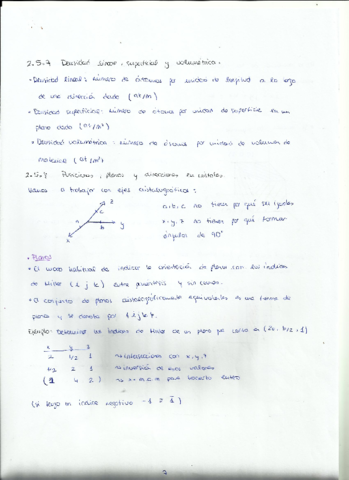 2.5.7 Densidad lineal, superficial y volumétrica.
• Densidad lineal: número de átomos por unidad de longitud a lo largo
de una dirección dada (at/m)
• Densidad superficial: número de átomos por unidad de superficie en un
plano dado (at/m²)
• Densidad volumétrica: número de átomos por unidad de volumen de
material (at/m³)
planos y direcciones en cristales.
Vamos a trabajar con ejes cristalográficos:
z
c
a
b
y
x
a, b, c no tienen por qué ser iguales
x, y, z no tienen por qué formar
ángulos de 90°
• Planos
• El modo habitual de indicar la orientación de planos son los índices
de Miller entre paréntesis y sin comas.
• El conjunto de planos cristalográficamente equivalentes es una forma de
planos y se denota por
Ejemplo: Determinar los índices de Miller de un plano que corta en
2 1/2 1 intersecciones con x, y, z
1/2 2 1 inversión de esos valores
(1 4 2) m.c.m. para hacerlo entero
(si tengo un índice negativo -1